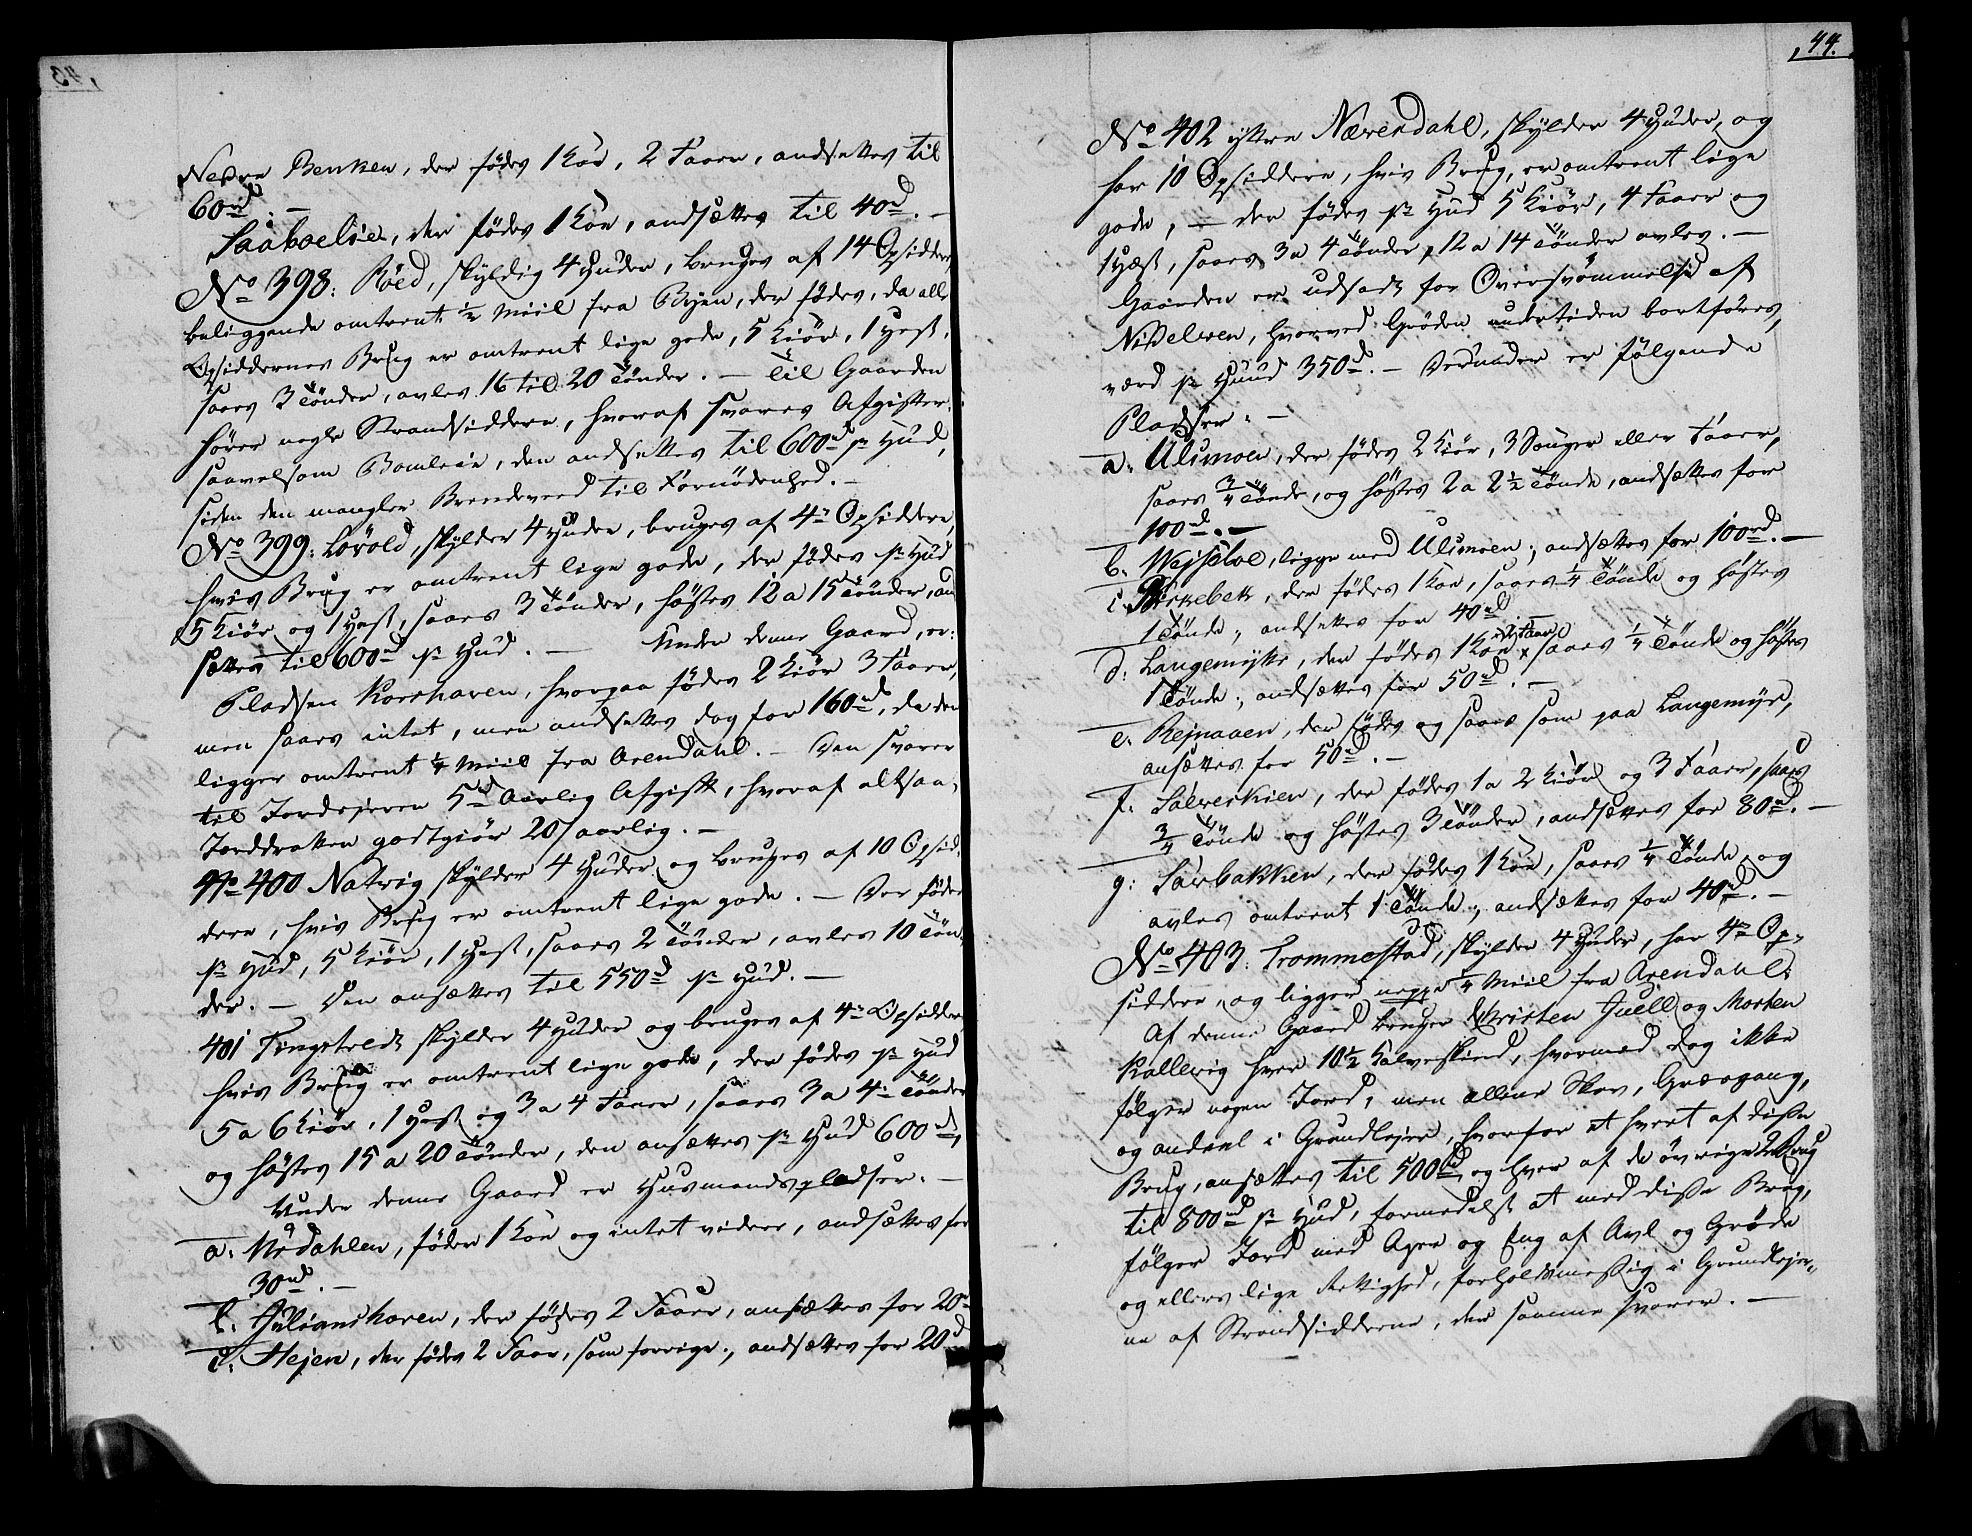 Nedre Benken, der födes 1 Koe, 2 Faare, andsettes til
60rd. —
Saaboelsie, der födes 1 Koe, andsættes til 40rd. —
No 398: Röed, skyldig 4 Huder, bruges af 14 Opsiddere
beliggende omtrent ½ Miil fra Byen, der födes, da alle
Opsiddernes Brug er omtrent lige gode, 5 Kiör, 1 Hest,
saaes 3 Tönder, avles 16 til 20 Tönder. — Til Gaarden
hörer nogle Strandsiddere, hvoraf svares Afgifter
saavelsom Bomleie, den andsettes til 600rd pr Hud,
siden den mangler Brendeveed til Fornödenhed. —
No 399: Lövold, skylder 4 Huder, bruges af 4re Opsiddere,
hvis Brug er omtrent lige gode, der födes pr Hud
5 Kiör og 1 Hest, saaes 3 Tönder, höstes 12 a 15 Tönder, an
sættes til 600rd pr Hud. — Under denne Gaard, er:
Pladsen Korshaven, hvorpaa födes 2 Kiör 3 Faarer,
men saaes intet, men andsettes dog for 160rd, da den
ligger omtrent ¼ Miil fra Arendahl. — Den svarer
til Jordejeren 5rd Aarlig Afgift, hvoraf altsaa
Jorddrotten godtgiör 20/ aarlig. —
No 400 Natvig skylder 4 Huder og bruges af 10 Opsid-
dere, hvis Brug er omtrent lige gode. — Der födes
pr Hud, 5 Kiör, 1 Hest, saaes 2 Tönder, avles 10 Tön
der. — Den ansættes til 550rd pr Hud. —
401 Tingstvedt skylder 4 Huder og bruges af 4re Opsiddere
hvis Brug er omtrent lige gode, der födes pr Hud
5 a 6 Kiör, 1 Hest og 3 a 4 Faarer, saaes 3 a 4re Tönder
og höstes 15 a 20 Tönder, den ansættes pr Hud 600rd,
Under denne Gaard er Husmandspladser. —
a: Medahlen, föder 1 Koe og intet videre, andsættes for
30rd. —
b. Julianshaven, der födes 2 Faarer, ansættes for 20rd
c. Hejen, der födes 2 Faar, som forrige, andsættes for 20rd
44.
No 402 ytre Nævendahl, skylder 4 Huder, og
har 10 Opsiddere, hvis Brug, er omtrent lige
gode, — der födes pr Hud 5 Kiör, 4 Faarer og
1 Hest, saaes 3 a 4 Tönder, 12 a 14 Tönder avles. —
Gaarden er udsadt for Oversvömmelse af
Nidelven, hvorved Gröden undertiden bortföres,
værd pr Huud 350rd. — Derunder er fölgende
Pladser: —
a. Ulsmoen, der födes 2 Kiör, 3 Souger eller Faarer,
saaes ¾ Tönde, og höstes 2 a 2½ Tönde, andsættes for
100rd. —
b. Wejseloe, ligge med Ulsmoen, andsættes for 100rd. —
c. Birkebek, der födes 1 Koe, saaes ¼ Tönde og höstes
1 Tönde, andsettes for 40rd
d: Langemyhr, der födes 1 Koe x 2 Faarer, saaes ¼ Tönde og höstes
1 Tönde, andsættes for 50rd. —
e. Rejnaaen, der födes og saaes som paa Langemyr,
ansættes for 50rd. —
f. Salverkien, der födes 1 a 2 Kiör og 3 Faarer, saaes
¾ Tönde og höstes 3 Tönder, andsættes for 80rd. —
g: Sævbakken, der födes 1 Koe, saaes ¼ Tönde og
avles omtrent 1 Tönde, andsættes for 40rd. —
No 403: Trommestad, skylder 4 Huder, har 4re Op-
siddere, og ligger neppe ¼ Miil fra Arendahl.
Af denne Gaard bruger Christen Juell og Morten
Kallevig hver 10½ Kalveskind, hvormed dog ikke
fölger nogen Jord, men allene Skov, Græsgang,
og andeel i Grundlejer, hvorfor et hvert af disse
Brug, ansættes til 500rd og hver af de övrige 2 Brug
til 800rd pr Hud, formedelst at med disse Brug,
fölger Jord med Ager og Eng af Avl og Gröde
og ellers lige Rettighed, forholdsmessig i Grundlejer-
ne af Strandsidderne, der samme svarer. —